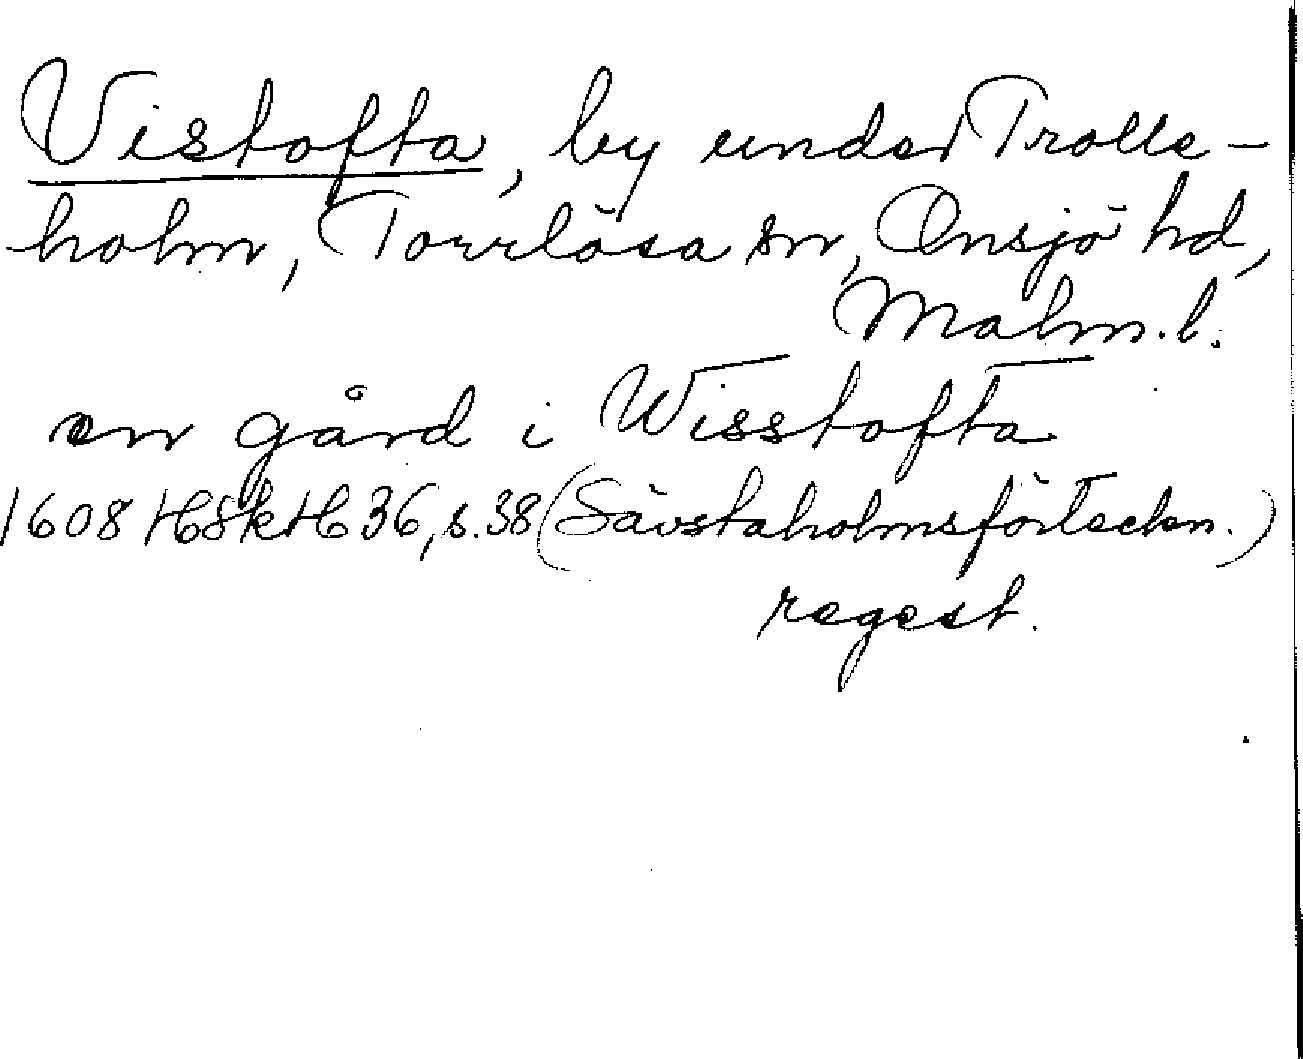 Vistofta, by under Trolle-
holm, Torrlösa sn, Onsjö hd,
Malm. l.
en gård i Wisstofta
1608 HSkH 36, s. 38 (Sävstaholmsförteckn.)
regest.